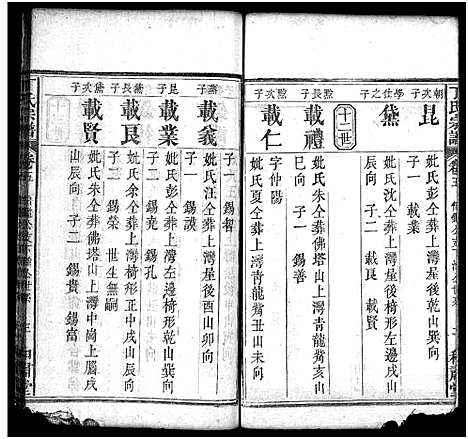 丁氏宗譜
卷五
朝次子
昆
妣氏沈仝葬上灣椅形左邊戌山
辰向 子一 載業
學仕之子
黛
妣氏彭仝葬上灣屋後椅形乾山巽向
子二 載艮 載賢
十二世
黙長子
載禮
妣氏朱仝葬佛塔山上灣青龍觜亥山
巳向 子一 錫善
黙次子
載仁
字仲陽
妣氏夏仝葬上灣青龍觜丑山未向
子一 錫智
燕子
載義
妣氏汪仝葬上灣屋後酉山卯向
子一 錫謨
昆子
載業
妣氏彭仝葬上灣左邊椅形乾山巽向
子二 錫堯 錫孔
黛長子
載艮
妣氏余仝葬上灣椅形正中戌山辰向
子二 錫榮 世生無嗣
黛次子
載賢
妣氏朱仝葬佛塔山上灣中崗上腦戌
山辰向 子二 錫貴 錫富
氏宗譜
卷五
三